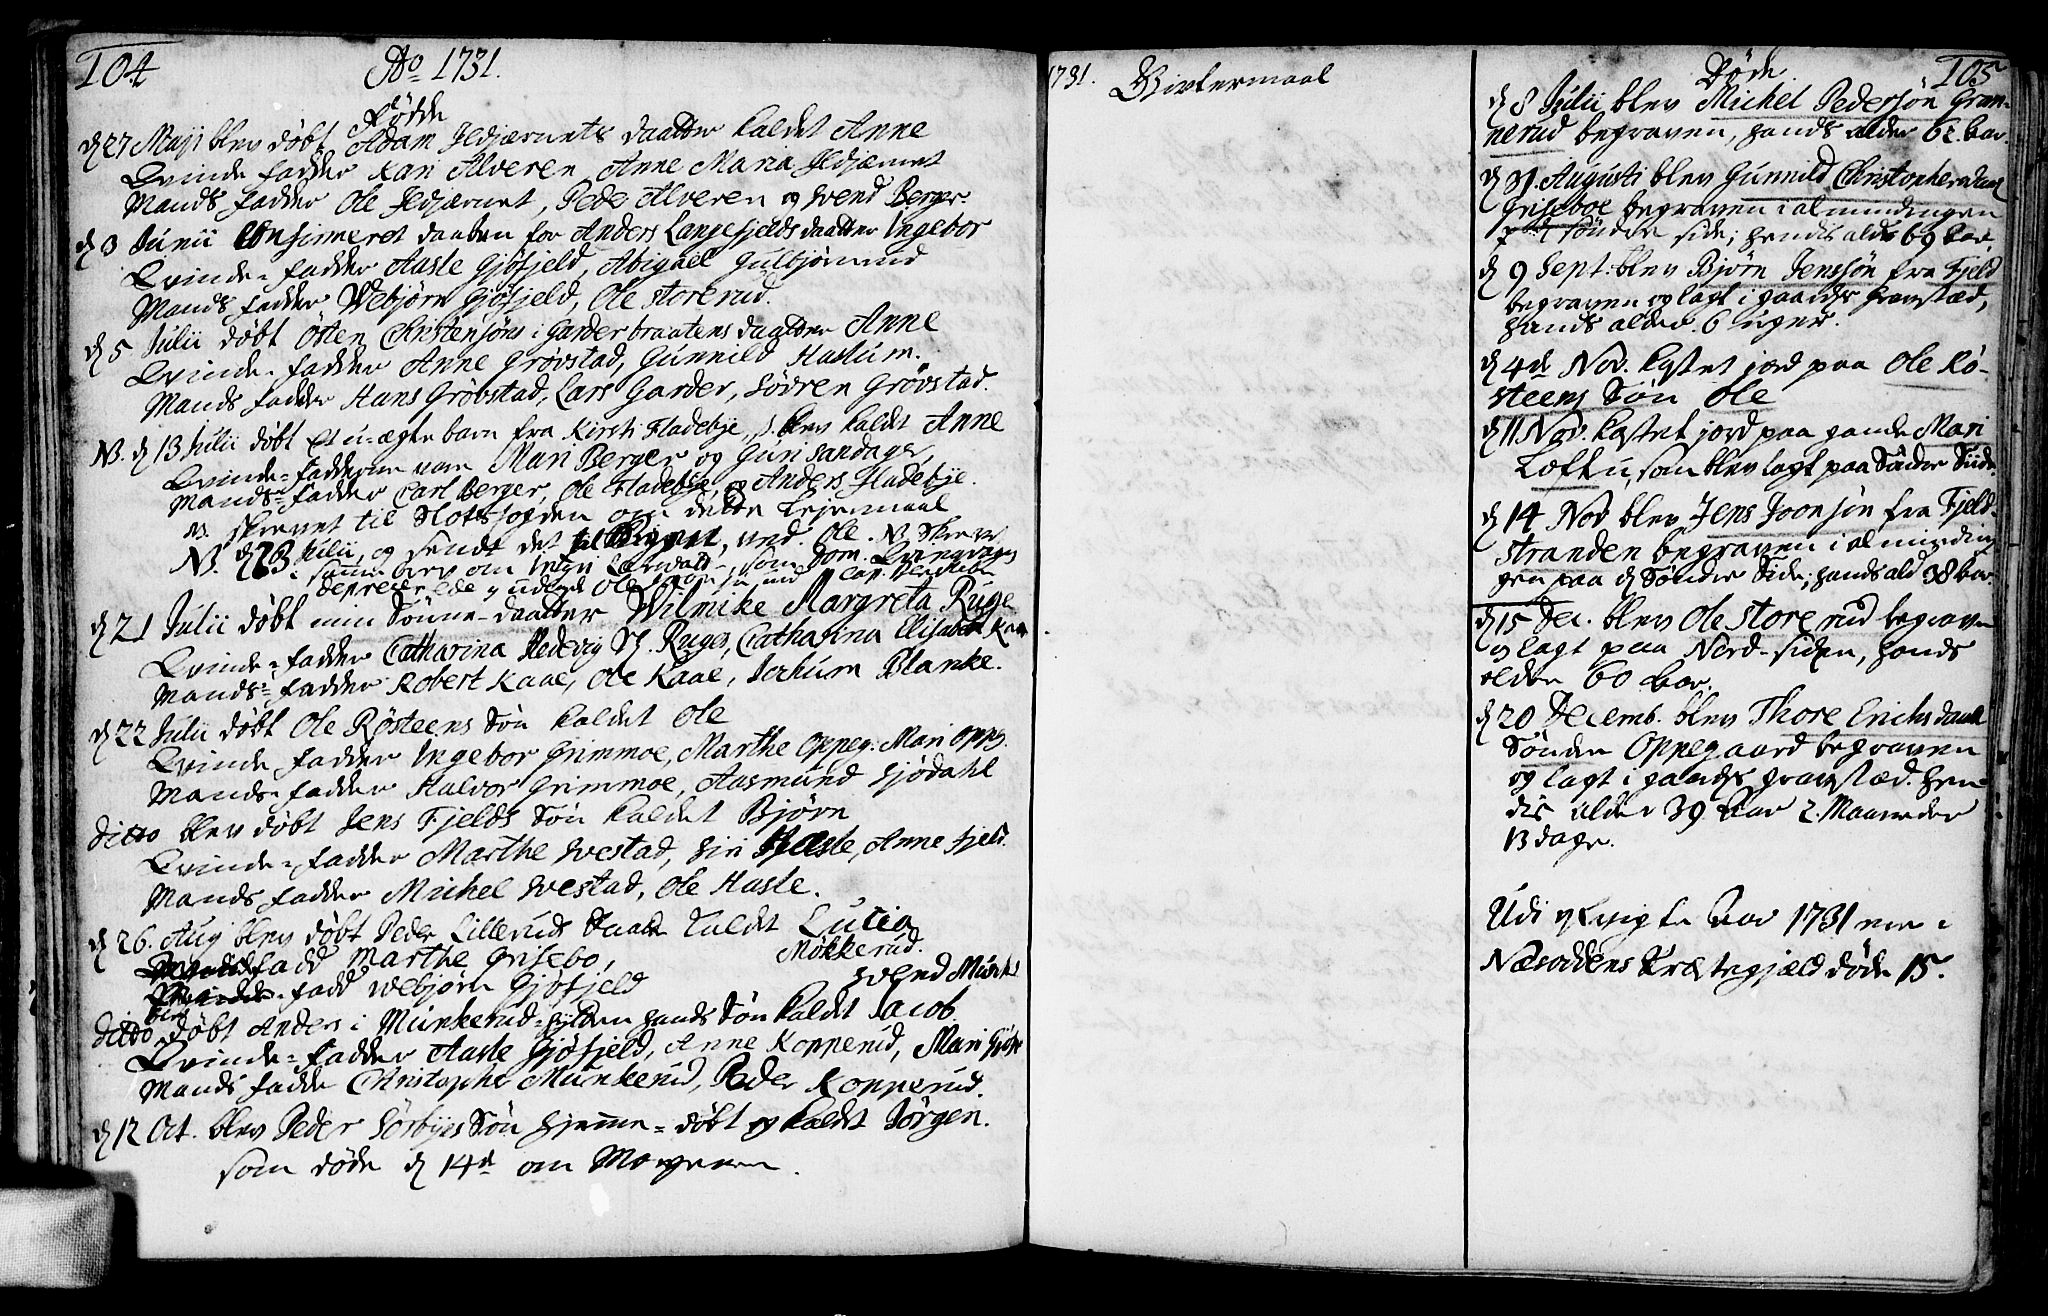 104
Ao 1731.
Fødde
d 27 Maji blev døbt Adam Jldjærnets daatter kaldet Anne
Qvinde fadder Kari Alveren, Anne Maria Jldjærnet
Mands fadder Ole Jldjærnet, Peder Alveren og Svend Berger.
d 3 Junii Confirmeret daaben for Anders Langefjelds daatter Ingebor
Qvinde-fadder Aasle Gjøfjeld, Abigael Gulbjørnrud
Mands fadder Webjørn Gjøfjeld, Ole Storerud.
d 5 Julii døbt Østen Christensøns i Garder braatens daatter Anne
Qvinde-fadder Anne Grøvstad, Gunnild Haslum.
Mands fadder Hans Grøvstad, Lars Garder, Søvren Grøvstad.
N. d 13 Julii døbt Et u-ægte barn fra Kirsti Fladebye, blev kaldet Anne
Qvinde-fadderne vare Mari Berger og Guri Sandager,
Mands-fadder Carl Berger, Ole Fladebye, og Anders Fladebye.
skrevet til Slotsfogden om dette Lejermaal
N. d 23 Julii, og sendt det ved Ole. N. Skrev
samme brev om
d 21 Julii døbt min Sønne-daatter Wilmike Margreta Ruge
Qvinde-fadder Catharina Hedevig Sl. Ruges, Catharina Elisabeth Kaae
Mands-fadder Robert Kaae, Ole Kaae, Jochum Blanke.
d 22 Julii døbt Ole Røsteens Søn kaldet Ole
Qvinde fadder Ingebor Grimmoe, Marthe Oppeg. Mari Oppg.
Mands-fadder Halvor Grimmoe, Aasmund Sjødahl
Ditto blev døbt Jens Fjelds Søn kaldet Bjørn
Qvinde-fadder Marthe Westad, Siri Hasle, Anne Fjeld.
Mands fadder Michel Westad, Ole Hasle.
d 26. Aug blev døbt Peder Lillerudz daatter kaldet Lucia
fadd Marthe Grisebo, Møkkerud.
fadd Webjørn Gjøfjeld Svend Munk
Ditto blev døbt Anders i Munkerud-hytten hands Søn kaldet Jacob.
Qvinde-fadder Aasle Gjøfjeld, Anne Kopperud, Mari Gjøfje
Mands fadder Christopher Munkerud, Peder Kopperud.
d 12 Oct. blev Peder Sørbyes Søn hjemme-døbt og kaldet Jørgen.
som døde d 14d om Morgenen.
1731. Givtermaal
Døde.
105
d 8 Julii blev Michel Pedersøn Gran-
nerud begraven, hands alder 62. Aar.
d 5. Augusti blev Gunnild Christophersdaat
Griseboe begraven i almindingen
Sønder side; hendis alder 69 Aar.
d 9 Sept: blev Bjørn Jenssøn fra Fjeld
begraven og lagt i gaards gravstæd,
hands alder 6 uger.
d 4d Nov. kastet jord paa Ole Rø-
steens Søn Ole
d 11 Nov. kastet jord paa gamle Mari
Løftu, som blev lagt paa Sønder Siide
d 14 Nov blev Jens Joonsøn fra Fjeld-
stranden begraven i almindin
gen paa d Sønder Side; hands ald 38 Aar.
d 15 Dec. blev Ole Storerud begraven
og lagt paa Nord-siden, hands
alder 60 Aar.
d 20 Decemb. blev Thore Erichsdaatt
Sønden Oppegaard begraven
og lagt i gaards gravstæd. hen-
dis alder 39 Aar 2. Maaneder
13 dage.
Udi Aar 1731 ere i
Næsoddens Præstegjæld døde 15.